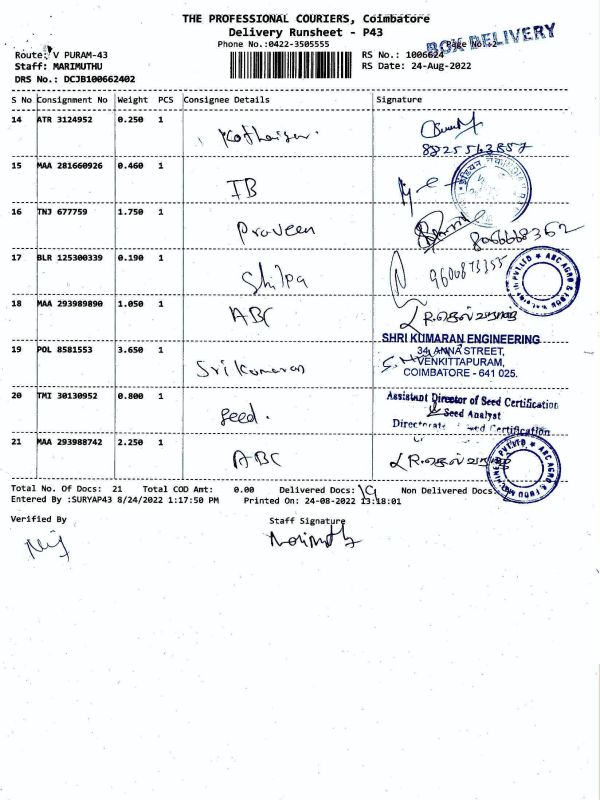 THE PROFESSIONAL COURIERS, Coimbatore
Delivery Runsheet - P43
Phone No.:0422-3505555
BOX DELIVERY
Page No.:-2-
Route: V PURAM-43
RS No.: 1006624
Staff: MARIMUTHU
RS Date: 24-Aug-2022
DRS No.: DCJB100662402
S No Consignment No Weight PCS Consignee Details Signature
14 ATR 3124952 0.250 1
8825563857
15 MAA 281660926 0.460 1 IB
16 TNJ 677759 1.750 1 Praveen
17 BLR 125300339 0.190 1 Shilpa
PVT.LTD ★ ABC AGRO &
18 MAA 293989890 1.050 1 ABC
SHRI KUMARAN ENGINEERING
19 POL 8581553 3.650 1 Sri Kumaran
34, ANNA STREET,
VENKITTAPURAM,
COIMBATORE - 641 025.
20 TMI 30130952 0.800 1 Seed.
Assistant Director of Seed Certification
Seed Analyst
Directorate Seed Certification
21 MAA 293988742 2.250 1 ABC
PVT.LTD ★ ABC AGRO &
Total No. Of Docs: 21 Total COD Amt: 0.00 Delivered Docs: 19 Non Delivered Docs:
Entered By :SURYAP43 8/24/2022 1:17:50 PM Printed On: 24-08-2022 13:18:01
Verified By Staff Signature